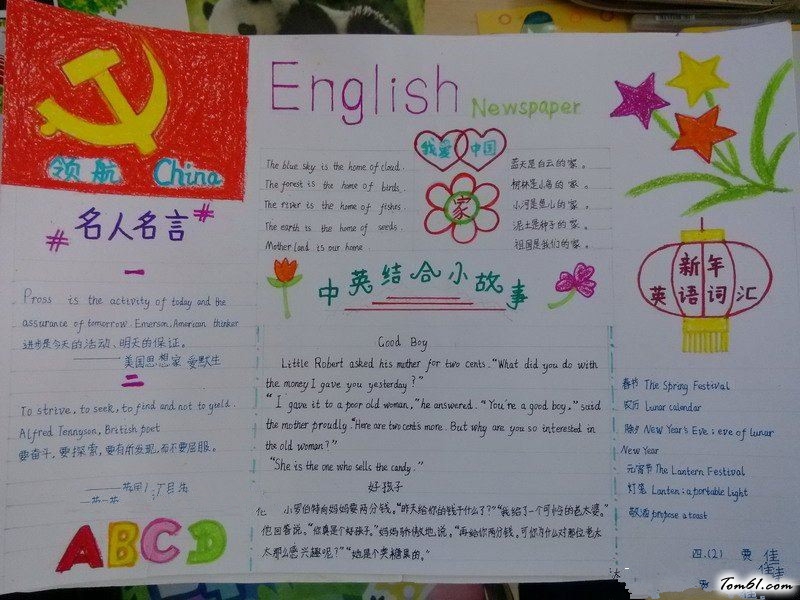 领航 China
English Newspaper
我爱 中国
家
The blue sky is the home of cloud.
The forest is the home of birds.
The river is the home of fishes.
The earth is the home of seeds.
Mother land is our home.
蓝天是白云的家。
树林是小鸟的家。
小河是鱼儿的家。
泥土是种子的家。
祖国是我们的家。
# 名人名言 #
一
Pross is the activity of today and the
assurance of tomorrow. Emerson, American thinker
进步是今天的活动、明天的保证。
——美国思想家 爱默生
二
To strive, to seek, to find and not to yield.
Alfred Tennyson, British poet
要奋斗,要探索,要有所发现,而不要屈服。
ABCD
中英结合小故事
Good Boy
Little Robert asked his mother for two cents. "What did you do with
the money I gave you yesterday?"
"I gave it to a poor old woman," he answered. "You're a good boy," said
the mother proudly. "Here are two cents more. But why are you so interested in
the old woman?"
"She is the one who sells the candy."
好孩子
小罗伯特向妈妈要两分钱。"昨天给你的钱干什么了?""我给了一个可怜的老太婆。"
他回答说。"你真是个好孩子。"妈妈骄傲地说。"再给你两分钱。可你为什么对那位老太
太那么感兴趣呢?""她是个卖糖果的。"
新年
英语词汇
春节 The Spring Festival
农历 Lunar calendar
除夕 New Year's Eve; eve of lunar
New Year
元宵节 The Lantern Festival
灯笼 Lanten: a portable light
敬酒 propose a toast
四.(2) 贾佳
Tom61.com